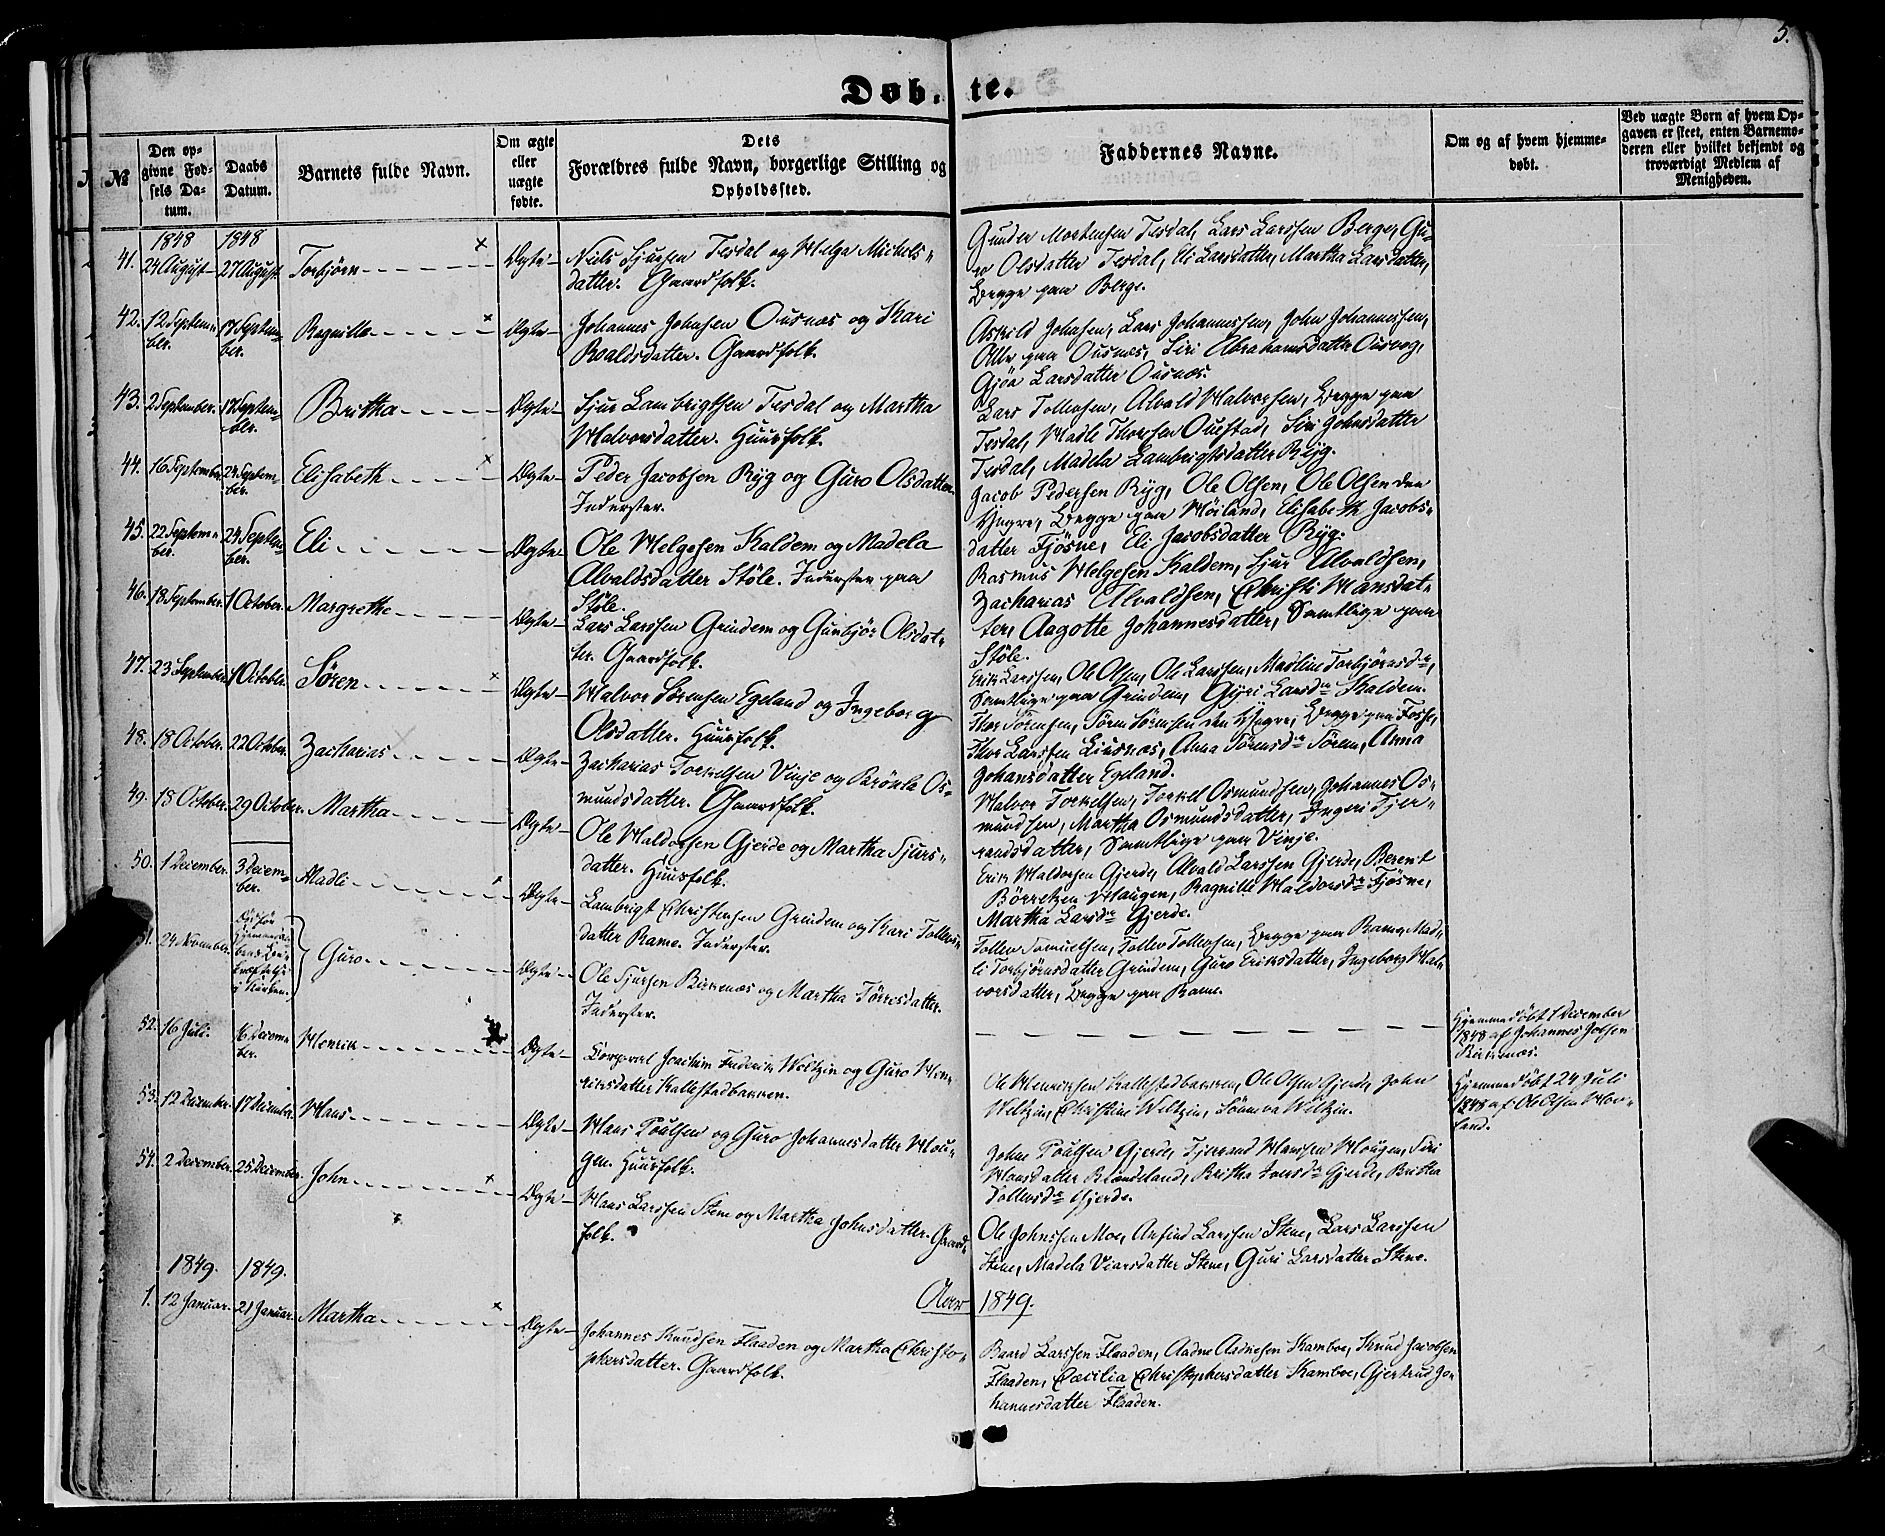 5.
Døbte.
№
Den opgivne Fødsels Datum.
Daabs Datum.
Barnets fulde Navn.
Om ægte eller uægte fødte.
Dets Forældres fulde Navn, borgerlige Stilling og Opholdssted.
Faddernes Navne.
Om og af hvem hjemmedøbt.
Ved uægte Børn af hvem Opgaven er skeet, enten Barnemoderen eller hvilket bekjendt og troværdigt Medlem af Menigheden.
1848 1848
41. 24 August 27 August Torbjørn Ægte
Niels Sjursen Tesdal og Helga Michels-
datter. Gaardfolk.
Gunder Mortensen Tesdal, Lars Larssen Berge, Gu-
ro Olsdatter Tesdal, Eli Larsdatter, Martha Larsdatter,
Begge paa Berge.
42. 12 Septem- 17 Septem- Ragnilla Ægte
ber. ber.
Johannes Johnsen Ousnæs og Kari
Roaldsdatter. Gaardfolk.
Askild Johnsen, Lars Johannessen, John Johannessen,
Alle paa Ousnæs, Siri Abrahamsdatter Ousvog,
Gjøa Larsdatter Ousnæs.
43. 2 September. 17 Septem- Britha Ægte
ber.
Sjur Lambrigtsen Tesdal og Martha
Halvorsdatter. Huusfolk.
Lars Tollevsen, Alvald Halvorsen, Begge paa
Tesdal, Madli Thorsen Oustad, Siri Johnsdatter
Tesdal, Madela Lambrigtsdatter Ryg.
44. 16 September 24 Septem- Elisabeth Ægte
ber.
Peder Jacobsen Ryg og Guro Olsdatter
Inderster.
Jacob Pedersen Ryg, Ole Olsen, Ole Olsen den
Yngre, Begge paa Høiland, Elisabeth Jacobs-
datter Fjøsne, Eli Jacobsdatter Ryg.
45. 22 Septem- 24 Septem- Eli Ægte
ber. ber.
Ole Helgesen Kaldem og Madela
Alvaldsdatter Støle. Inderster paa
Støle.
Rasmus Helgesen Kaldem, Sjur Alvaldsen,
Zacharias Alvaldsen, Christi Hansdat-
ter, Aagotte Johannesdatter, Samtlige paa
Støle.
46. 18 September. 1 October. Margrethe Ægte
Lars Larssen Grindem og Gunbjør Olsdat-
ter. Gaardfolk.
Erik Larssen, Ole Olsen, Ole Larssen, Madline Torbjørnsdr,
Samtlige paa Grindem, Gyri Larsdr Kaldem.
47. 23 September 1 October. Søren Ægte
Halvor Sørensen Egeland og Ingeborg
Olsdatter. Huusfolk.
Thor Sørensen, Søren Sørensen den Yngre, Begge paa Fosse,
Thor Larssen Liusnæs, Anna Sørensdr Sørem, Anna
Johansdatter Egeland.
48. 18 October. 22 October. Zacharias Ægte
Zacharias Torkelsen Vinje og Brønla Os-
mundsdatter. Gaardfolk.
Halvor Torkelsen, Torkel Osmundsen, Johannes Os-
mundsen, Martha Osmundsdatter, Ingeri Tjer-
randsdatter, Samtlige paa Vinje.
49. 18 October. 29 October. Martha Ægte
Ole Haldorsen Gjerde og Martha Sjurs-
datter. Huusfolk.
Erik Haldorsen Gjerde, Alvald Larssen Gjerde, Berent
Børretzen Haugen, Ragnille Haldorsdr Fjøsne,
Martha Larsdr Gjerde.
50. 1 December. 3 Decem- Madli Ægte
ber.
Lambrigt Christensen Grindem og Kari Tollevs-
datter Rame. Inderster.
Tollev Samuelsen, Tollev Tollevsen, Begge paa Rame, Mad-
li Torbjørnsdatter Grindem, Guro Eriksdatter, Ingeborg Hal-
vorsdatter, Begge paa Rame.
51. 24 November. Guro Ægte
i Kirken.
Ole Sjursen Birkenæs og Martha Tørresdatter.
Inderster.
Hjemmedøbt 1 December
1848 af Johannes Jolsen
Birkenæs.
52. 16 Juli. 16 Decem- Henrik Ægte
ber.
Corporal Joachim Frederik Weltzin og Guro Hen-
riksdatter Kallestadbakken.
Ole Henriksen Kallestadbakken, Ole Olsen Gjerde, John
Weltzin, Christine Weltzin, Sønneva Weltzin.
Hjemmedøbt 24 Juli
1848 af Ole Olsen Hov-
land.
53. 12 December. 17 December. Hans Ægte
Hans Poulsen og Guro Johannesdatter Hou-
gen. Huusfolk.
John Poulsen Gjerde, Tjerand Hansen Hougen, Siri
Hansdatter Rundeland, Britha Ivarsdr Gjerde, Britha
Tollevsdr Gjerde.
54. 2 December. 25 December. John Ægte
Hans Larssen Stene og Martha Johnsdatter. Gaard-
folk.
Ole Johnssen Moe, Anfind Larssen Stene, Lars Larssen
Stene, Madela Viarsdatter Stene, Guri Larsdatter Stene.
1849. 1849.
Aar 1849.
1. 12 Januar. 21 Januar. Martha Ægte
Johannes Knudsen Flaaden og Martha Christo-
phersdatter. Gaardfolk.
Baard Larssen Flaaden, Aadne Aadnesen Kamboe, Knud Jacobsen
Flaaden, Cæcilia Christophersdatter Kamboe, Gjertrud Jo-
hannesdatter Flaaden.